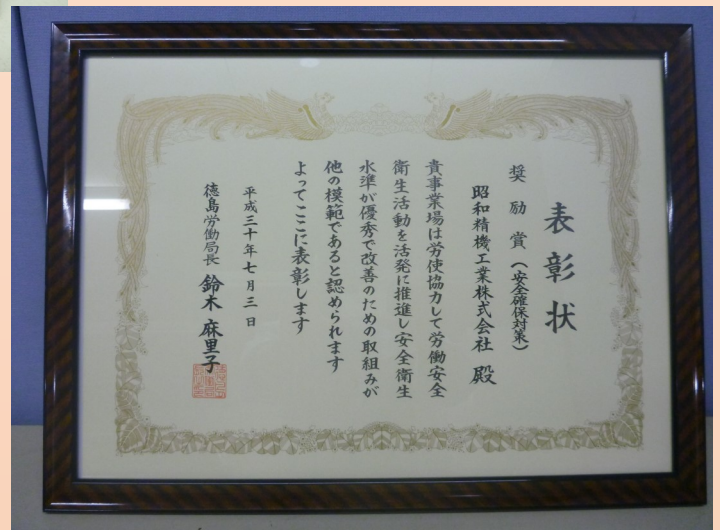 表彰状
奨励賞（安全確保対策）
昭和精機工業株式会社 殿
貴事業場は労使協力して労働安全
衛生活動を活発に推進し安全衛生
水準が優秀で改善のための取組みが
他の模範であると認められます
よってここに表彰します
平成三十年七月三日
徳島労働局長 鈴木麻里子